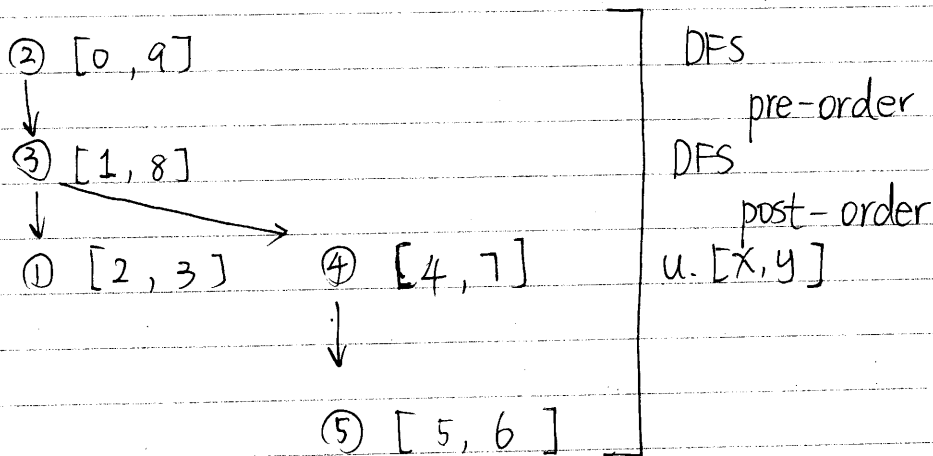 ② [0, 9]
③ [1, 8]
① [2, 3] ④ [4, 7]
⑤ [5, 6]
DFS
pre-order
DFS
post-order
u. [x, y]